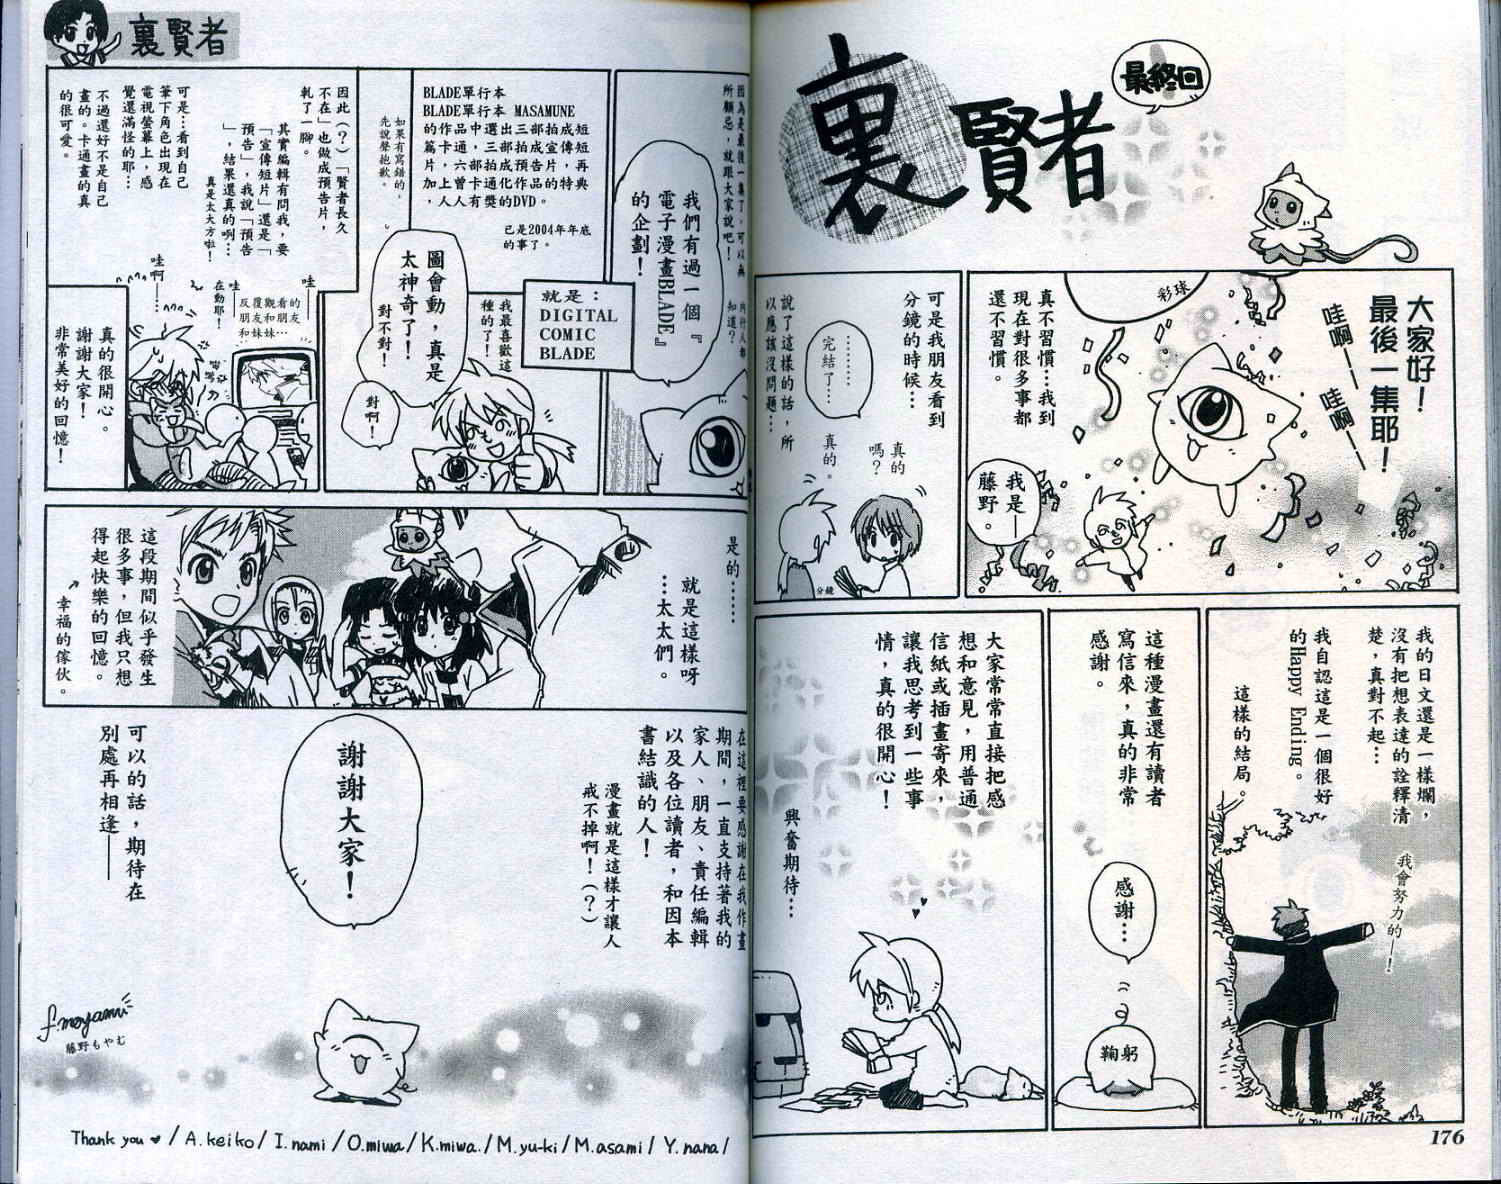 裏賢者
最終回
大家好！
最後一集耶！
哇啊——
哇啊——
彩球
真不習慣…我到
現在對很多事都
還不習慣。
我是—
藤野。
可是我朋友看到
分鏡的時候…
………
完結了…
真的
嗎？
真的。
分鏡
說了這樣的話，所
以應該沒問題…
我的日文還是一樣爛，
沒有把想表達的詮釋清
楚，真對不起…
我會努力的—！
我自認這是一個很好
的Happy Ending。
這樣的結局。
這種漫畫還有讀者
寫信來，真的非常
感謝。
感謝…
鞠躬
大家常常直接把感
想和意見，用普通
信紙或插畫寄來，
讓我思考到一些事
情，真的很開心！
興奮期待…
176
裏賢者
因為是最後一集了，可以無
所顧忌，就跟大家說吧！
內行人都
知道？
我們有過一個『
電子漫畫BLADE』
的企劃！
就是：
DIGITAL
COMIC
BLADE
BLADE單行本
BLADE單行本 MASAMUNE
的作品中選出三部拍成短
篇卡通，三部拍成宣傳短
片，六部拍成預告片，再
加上曾卡通化作品的特典
，人人有獎的DVD。
已是2004年年底
的事了。
如果有寫錯的，
先說聲抱歉。
我最喜歡這
種的了！
圖會動，真是
太神奇了！
對不對！
對啊！
因此（？）「賢者長久
不在」也做成預告片，
軋了一腳。
其實編輯有問我，要
「宣傳短片」還是「
預告」，我說「預告
」，結果還真的咧…
真是太大方啦！
可是…看到自己
筆下角色出現在
電視螢幕上，感
覺還滿怪的耶…
不過還好不是自己
畫的。卡通畫的真
的很可愛。
哇—
哇—
在動耶！
哇
啊—…
反覆觀看的
朋友和朋友
和妹妹…
真的很開心。
謝謝大家！
非常美好的回憶！
是的……
就是這樣呀
…太太們。
這段期間似乎發生
很多事，但我只想
得起快樂的回憶。
幸福的傢伙。
在這裡要感謝在我作畫
期間，一直支持著我的
家人、朋友、責任編輯
以及各位讀者，和因本
書結識的人！
漫畫就是這樣才讓人
戒不掉啊！（？）
謝謝大家！
可以的話，期待在
別處再相逢——
f.moyamu
藤野もやむ
Thank you ♥ / A.keiko / I.nami / O.miwa / K.miwa. / M.yu-ki / M.asami / Y.nana /